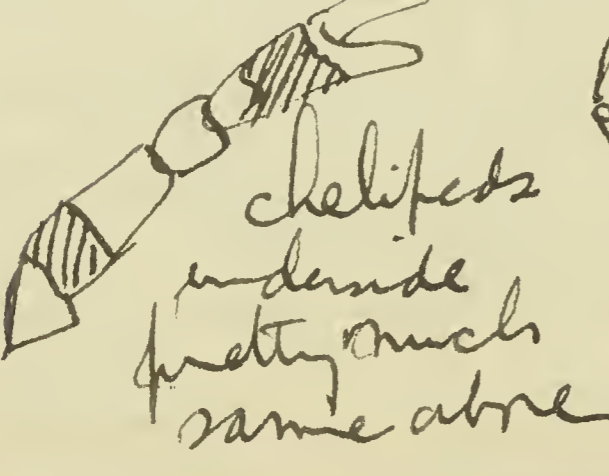 chelipeds
underside
pretty much
same above